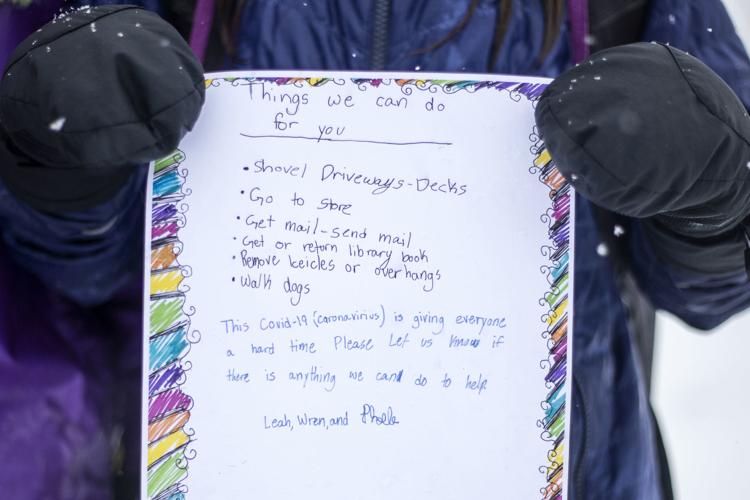 Things we can do
for you
• Shovel Driveways-Decks
• Go to store
• Get mail-send mail
• Get or return library book
• Remove Iceicles or overhangs
• Walk dogs
This Covid-19 (caronavirius) is giving everyone
a hard time Please Let us know if
there is anything we can do to help
Leah, Wren, and Phoebe